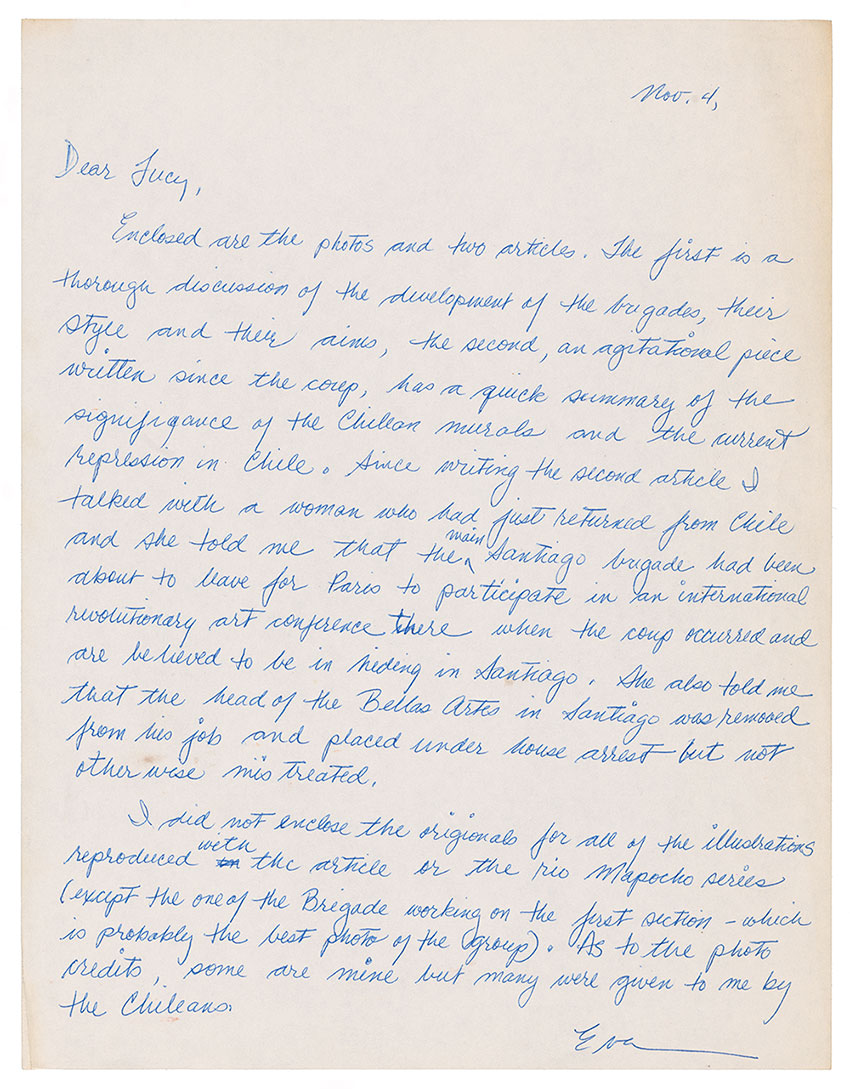 Nov. 4,
Dear Lucy,
Enclosed are the photos and two articles. The first is a
thorough discussion of the development of the brigades, their
style and their aims, the second, an agitational piece
written since the coup, has a quick summary of the
signifigance of the Chilean murals and the current
repression in Chile. Since writing the second article I
talked with a woman who had just returned from Chile
and she told me that the main Santiago brigade had been
about to leave for Paris to participate in an international
revolutionary art conference there when the coup occurred and
are believed to be in hiding in Santiago. She also told me
that the head of the Bellas Artes in Santiago was removed
from his job and placed under house arrest but not
otherwise mistreated.
I did not enclose the origionals for all of the illustrations
reproduced with the article or the rio Mapocho series
(except the one of the Brigade working on the first section - which
is probably the best photo of the group). As to the photo
credits, some are mine but many were given to me by
the Chileans.
Eva